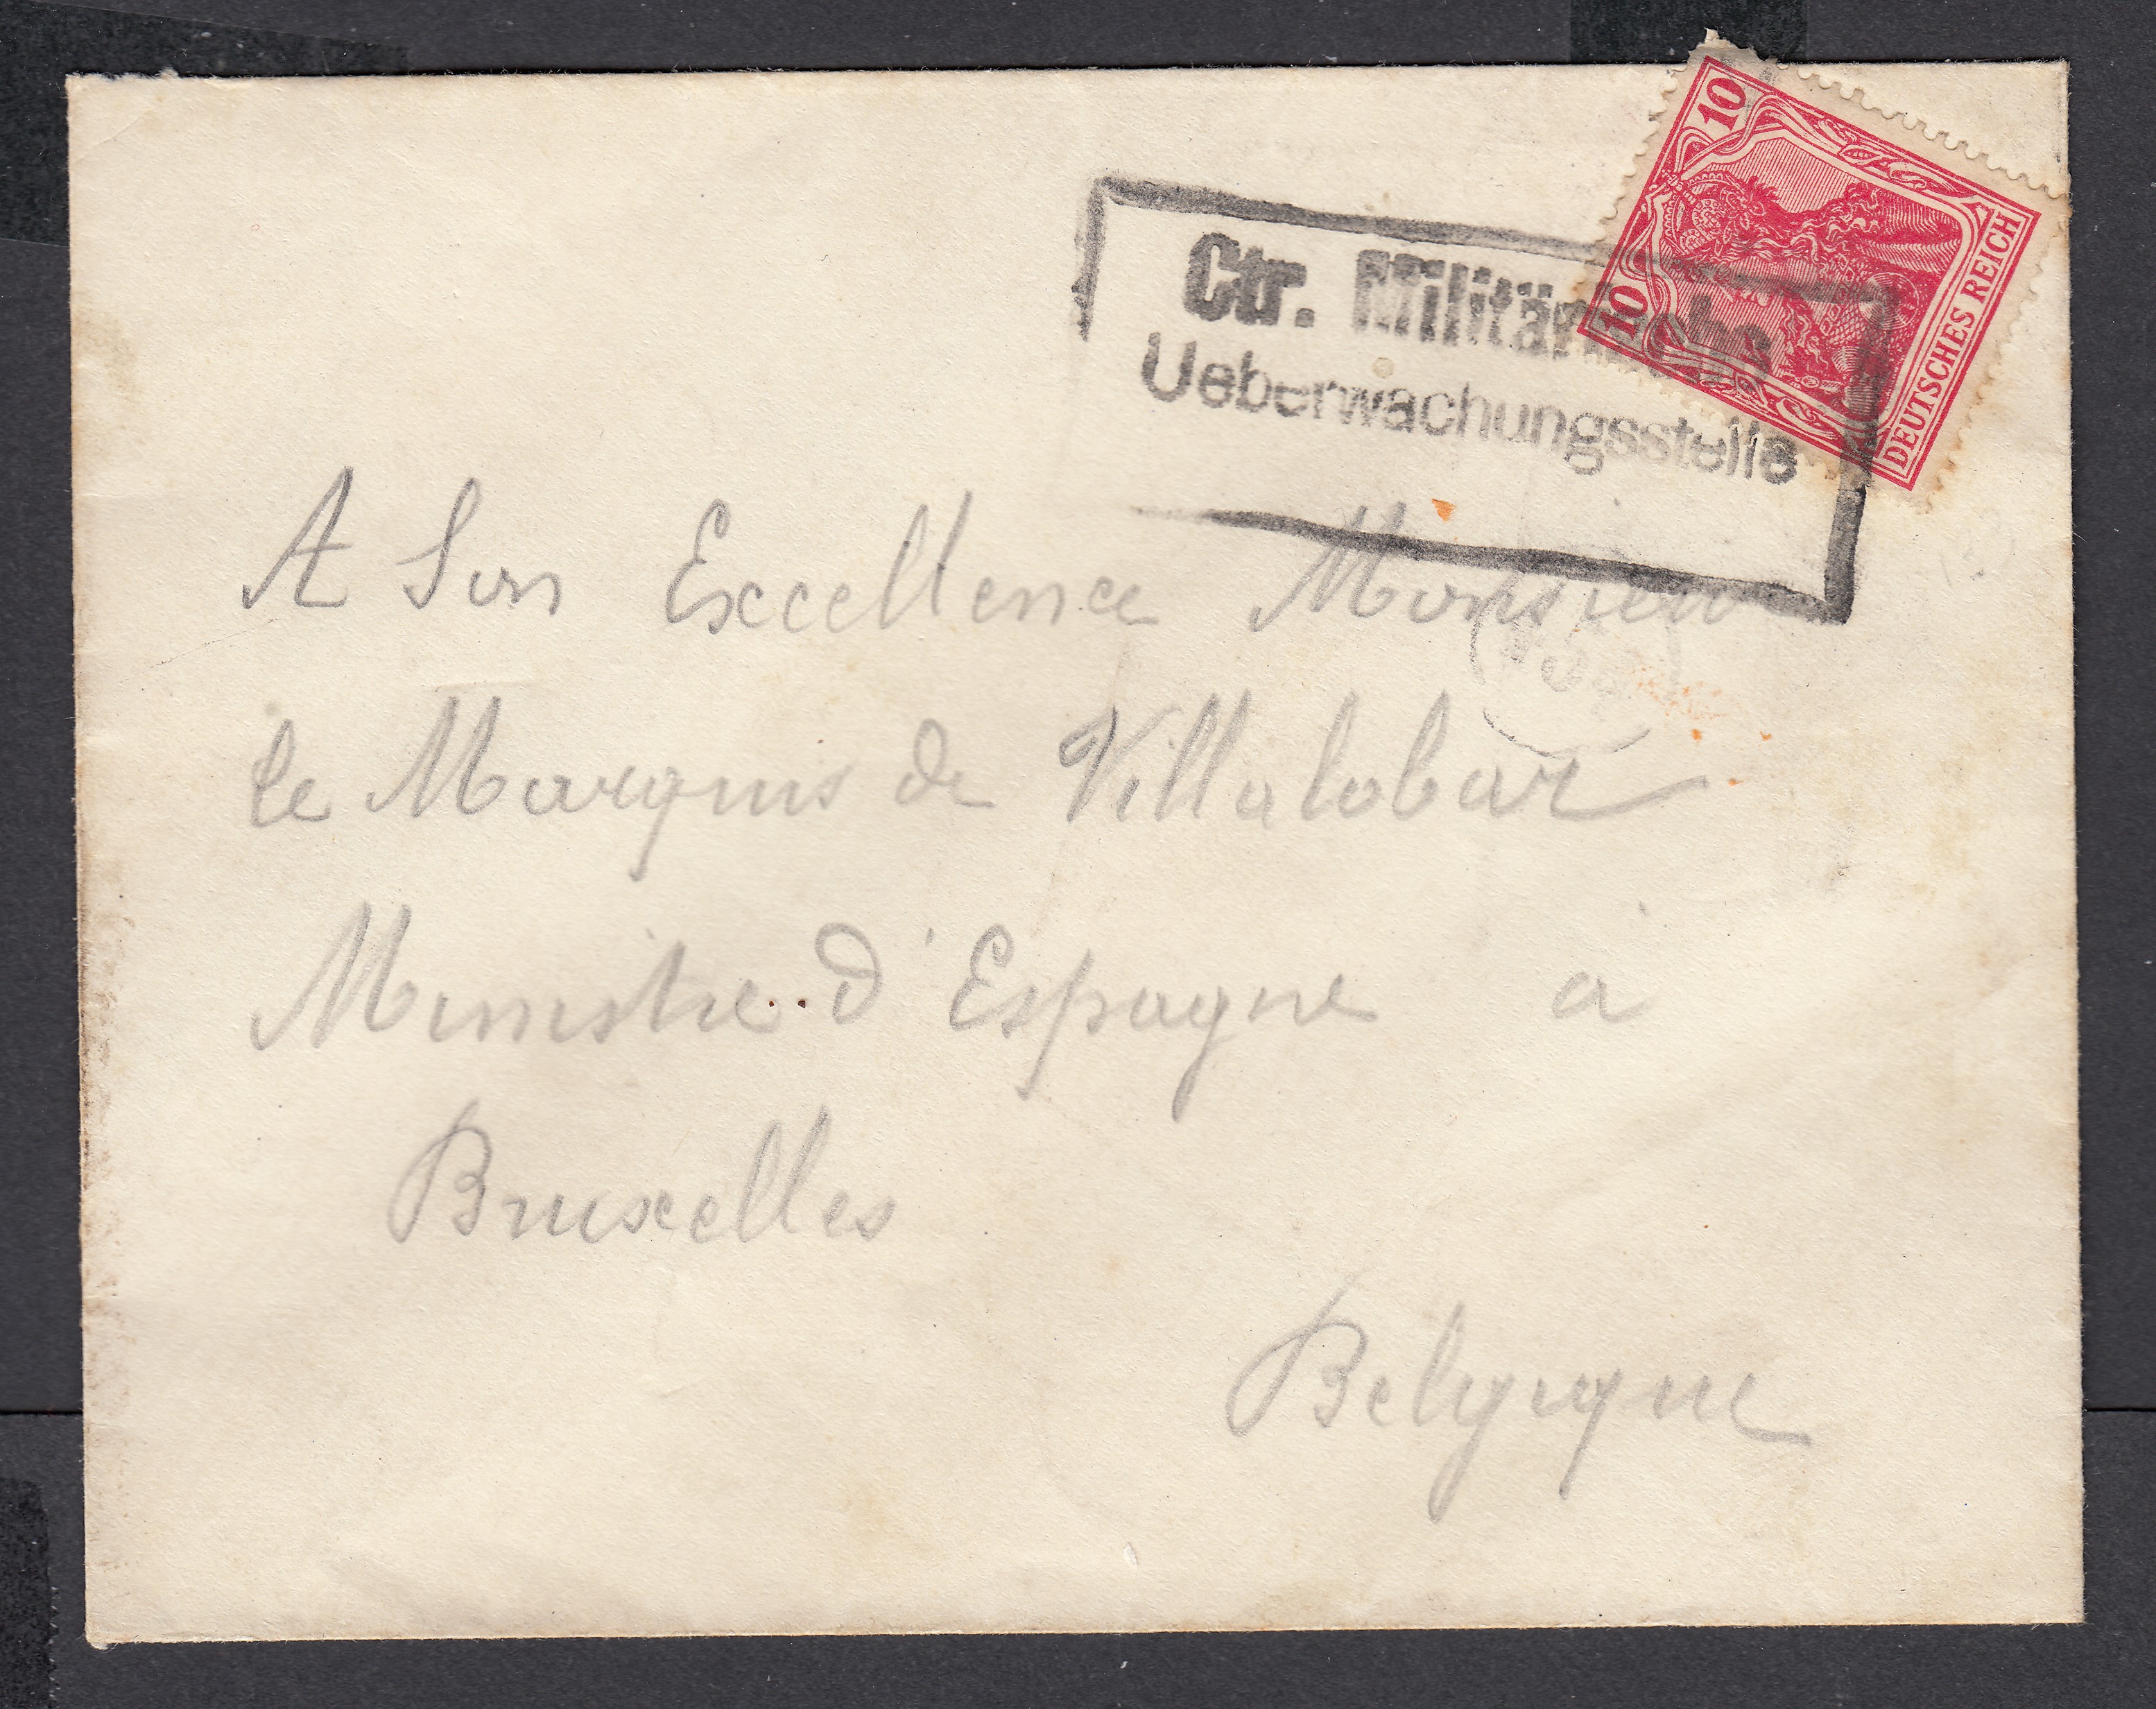 10
10
DEUTSCHES REICH
Ctr. Militärischs
Ueberwachungsstelle
A Son Excellence Monsieur
le Marquis de Villalobar
Ministre d'Espagne à
Bruxelles
Belgique